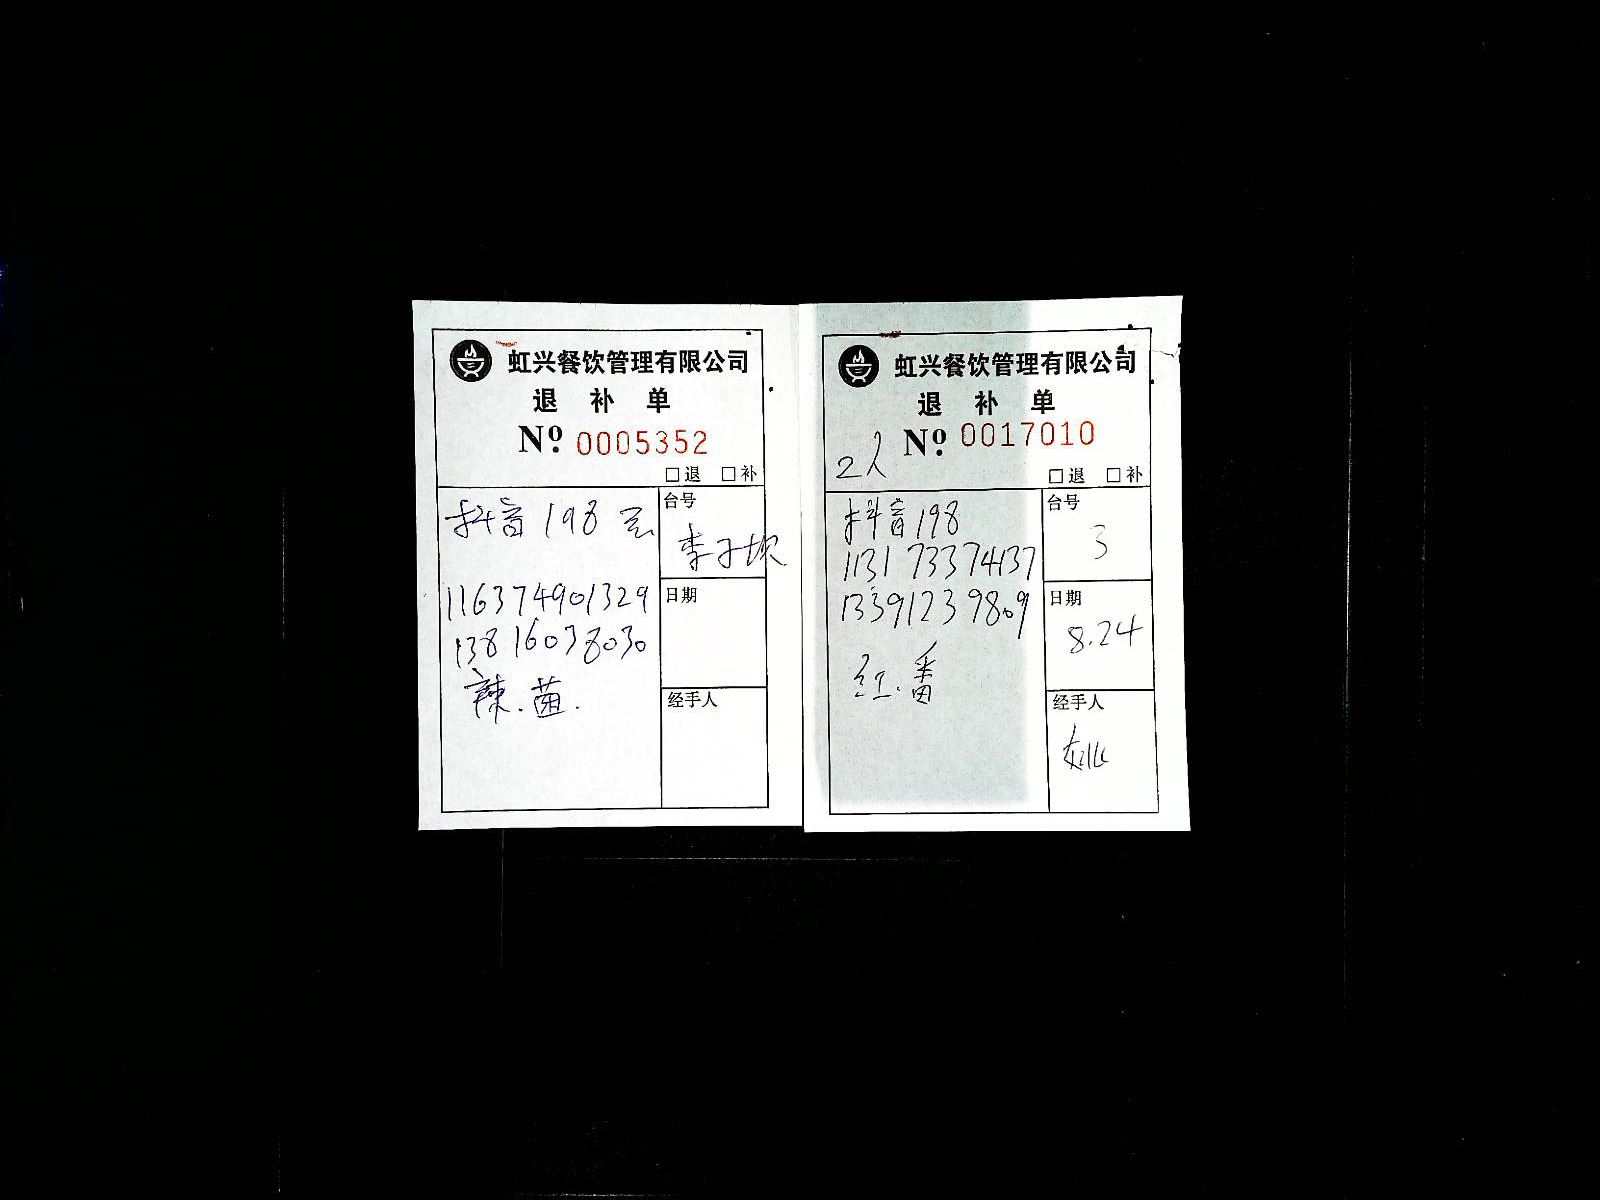 虹兴餐饮管理有限公司
退 补 单
Nº 0005352
□退 □补
抖音198元
台号
李子坝
116374901329
日期
13816038030
辣.菌.
经手人
虹兴餐饮管理有限公司
退 补 单
2人 Nº 0017010
□退 □补
抖音198
台号
3
113173374137
13391239809
日期
8.24
红.番
经手人
姚